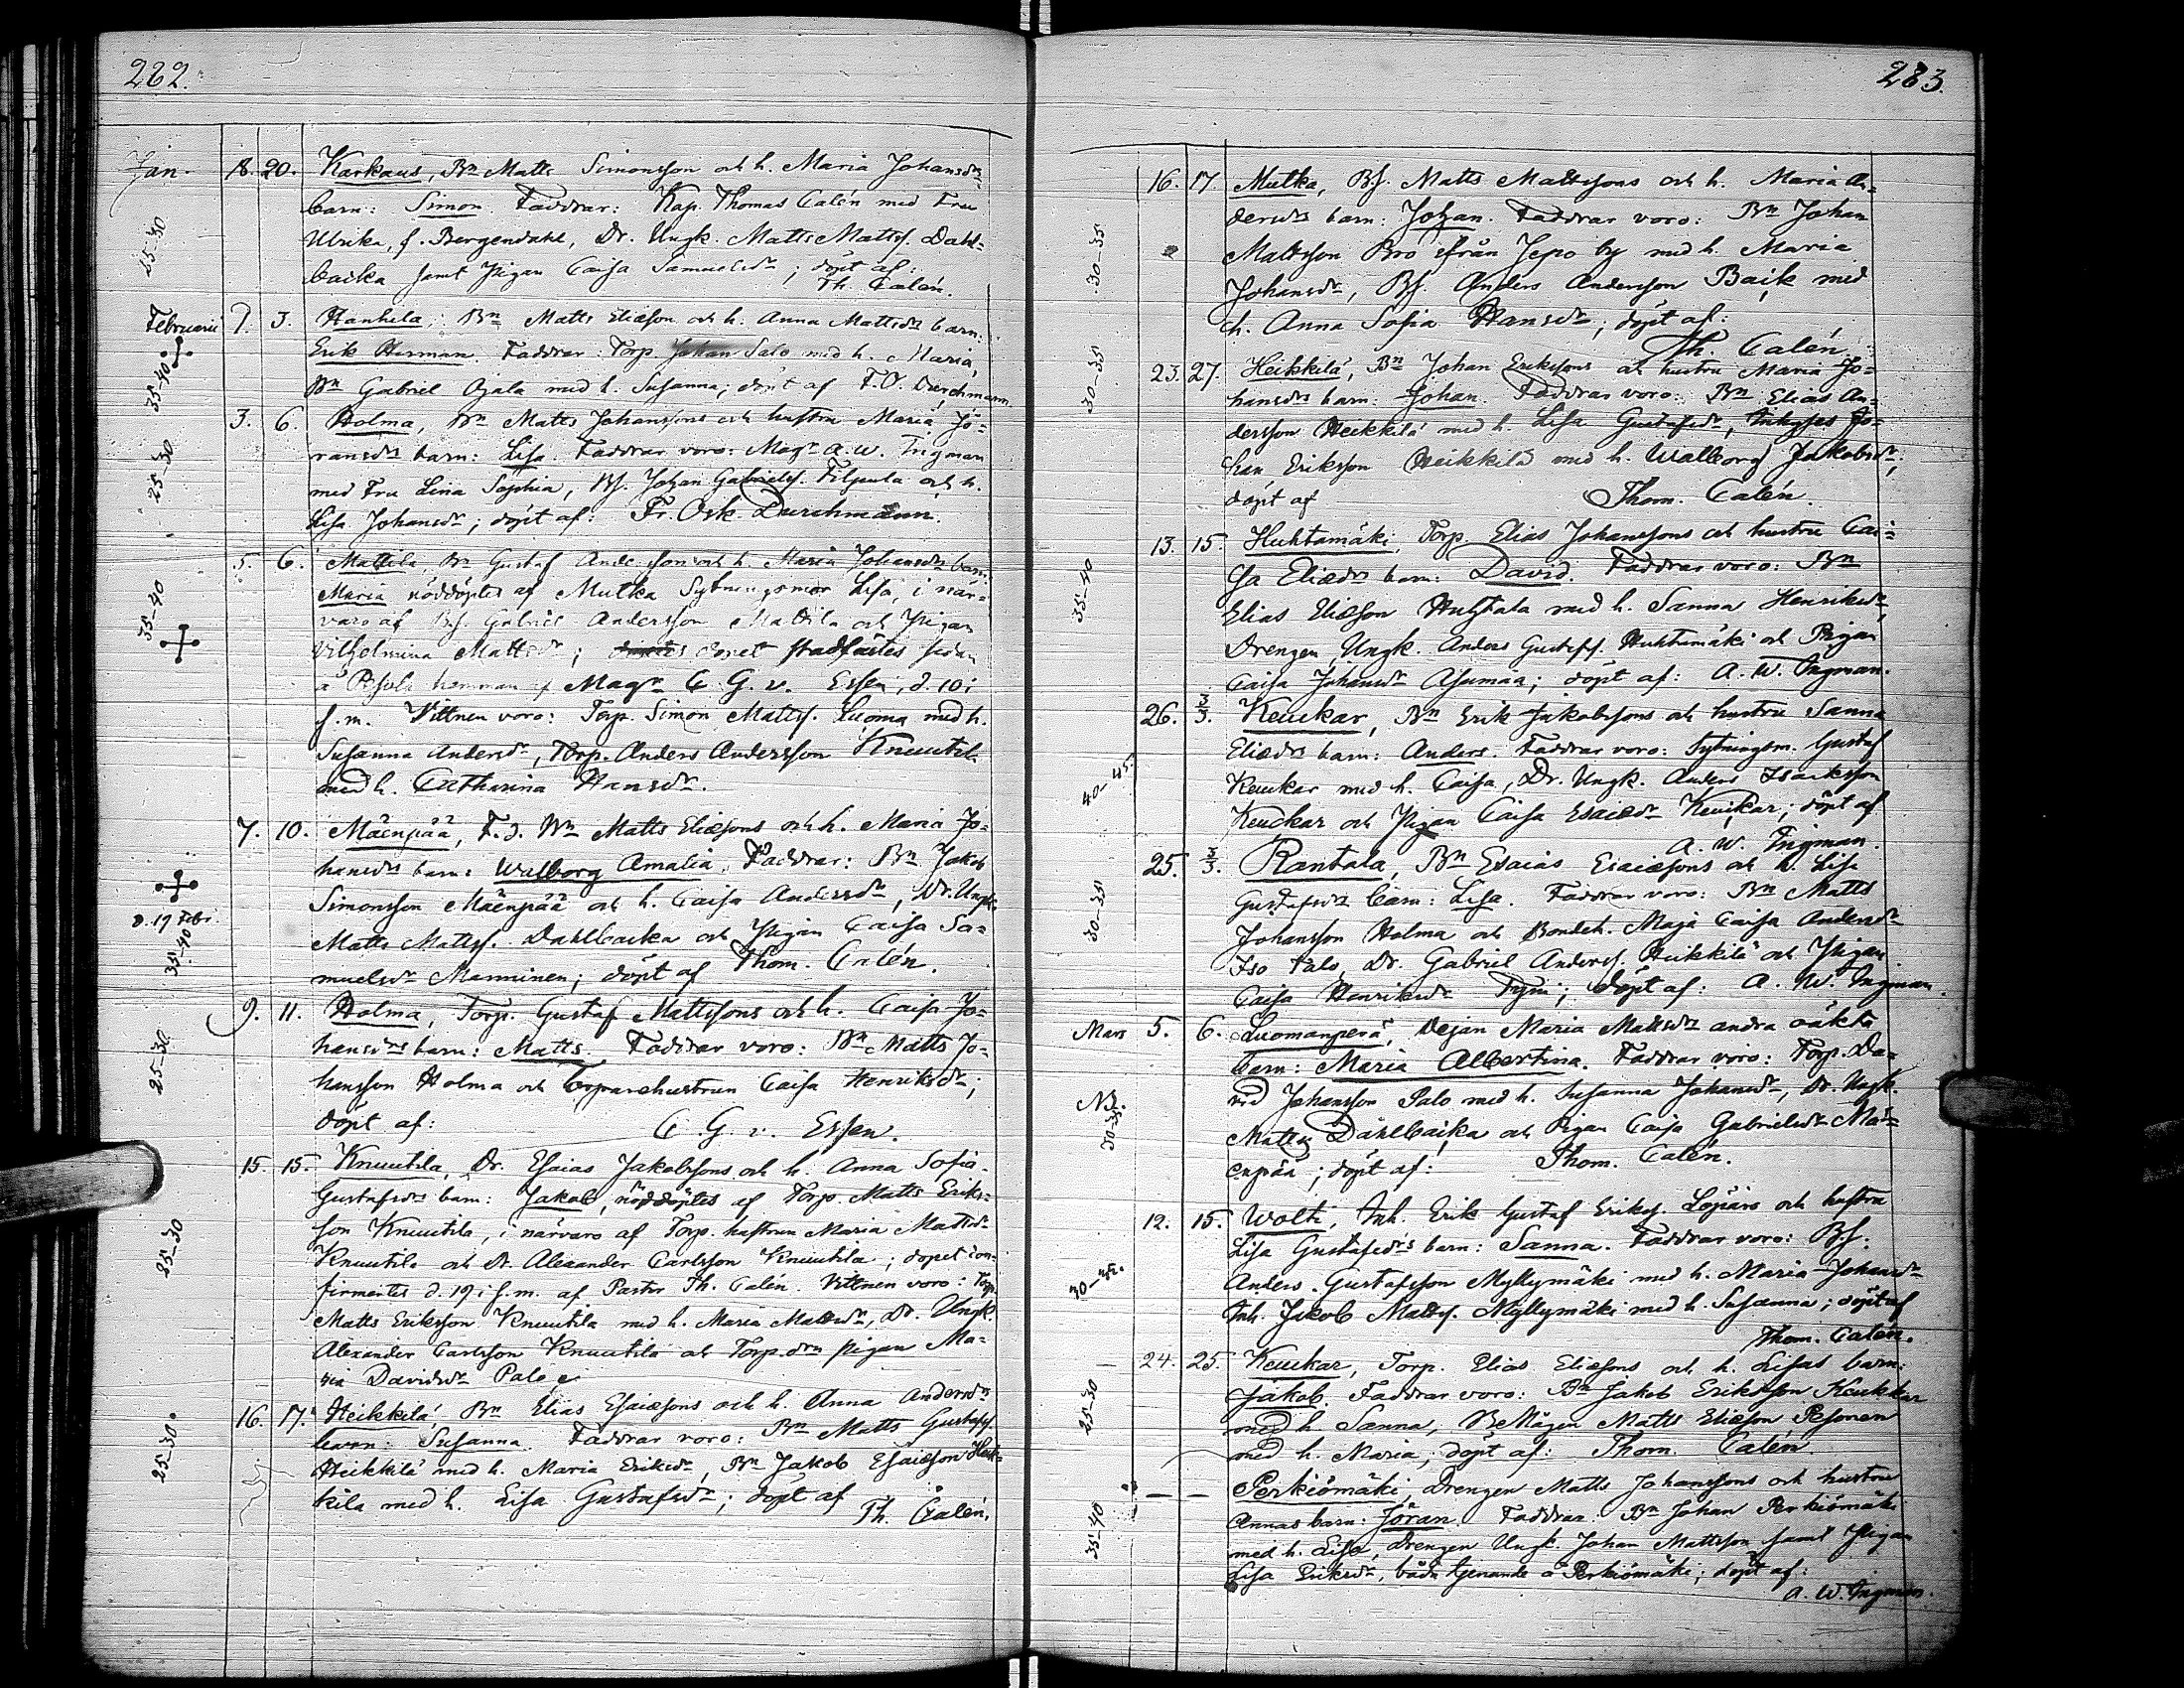 282.
Jan. 18. 20. Karkaus, Bn Matts Simonsson och h. Maria Johansdrs
barn: Simon. Faddrar: Kap. Thomas Calén med Fru
Ulrika, f. Bergendahl, Dr. Ungk. Matts Mattsf. Dahl-
25-30
backa samt Pigan Caisa Samuelsdr; döpt af:
Th. Calén.
Februarii 1. 3. Hanhila, Bn Matts Eliæson och h. Anna Mattsdrs barn:
Erik Herman. Faddrar: Torp. Johan Salo med h. Maria,
35-40
Bn Gabriel Ojala med h. Susanna; döpt af F. O. Durchmann.
3. 6. Holma, Bn Matts Johanssons och hustru Maria Jö-
ransdrs barn: Lisa. Faddrar voro: Magr A. W. Ingman
25-30
med Fru Lina Sophia, Bs. Johan Gabrielss. Filpula och h.
Lisa Johansdr; döpt af: Fr. Osk. Durchmann.
5. 6. Mattila, Bn Gustaf Andersson och h. Maria Johansdrs barn
Maria nöddöptes af Mutka Sytningsmor Lisa, i när-
35-40
varo af Bs. Gabriel Andersson Mattila och Pigan
Vilhelmina Mattsdr; dopet stadfästes sedan
å hemman af Magr C. G. v. Essen, d. 10 i
s. m. Vittnen voro: Torp. Simon Mattss. Luoma med h.
Susanna Andersdr, Torp. Anders Andersson Knuutil.
med h. Catharina Hansdr.
7. 10. Mäenpää, F. d. Bn Matts Eliæsons och h. Maria Jo-
hansdrs barn: Walborg Amalia. Faddrar: Bn Jakob
Simonsson Mäenpää och h. Caisa Andersdr, Dr. Ungk.
d. 19 Febr.
Matts Mattss. Dahlbacka och Pigan Caisa Sa-
35-40
muelsdr Manninen; döpt af Thom. Calén.
9. 11. Holma, Torp. Gustaf Mattssons och h. Caisa Jo-
hansdrs barn: Matts. Faddrar voro: Bn Matts Jo-
25-30
hansson Holma och Torparehustrun Caisa Henriksdr;
döpt af: C. G. v. Essen.
15. 15. Knuutila, Dr. Esaias Jakobssons och h. Anna Sofia
Gustafsdrs barn: Jakob, nöddöptes af Torp. Matts Eriks-
son Knuutila, i närvaro af Torp. hustrun Maria Mattsdr
25-30
Knuutila och Dr. Alexander Carlsson Knuutila; dopet con-
firmertes d. 19 i s. m. af Pastor Th. Calén. Vittnen voro: Torp.
Matts Eriksson Knuutila med h. Maria Mattsdr, Dr. Ungk.
Alexander Carlsson Knuutila och Torp.drn pigan Ma-
ria Davidsdr Palo
16. 17. Heikkilä, Bn Elias Esaiæsons och h. Anna Andersdrs
barn: Susanna. Faddrar voro: Bn Matts Gustafss.
25-30.
Heikkilä med h. Maria Eriksdr, Bn Jakob Esaiæson Heik-
kila med h. Lisa Gustafsdr; döpt af
Th. Calén.
283.
16. 17. Mutka, Bs. Matts Mattssons och h. Maria An-
dersdrs barn: Johan. Faddrar voro: Bn Johan
30-35
Mattsson Bro ifrån Jepo by med h. Maria
Johansdr, Bs. Anders Andersson Back med
h. Anna Sofia Hansdr; döpt af:
Th. Calén.
23. 27. Heikkilä, Bn Johan Erikssons och hustru Maria Jo-
30-35
hansdrs barn: Johan. Faddrar voro: Bn Elias An-
dersson Heikkilä med h. Lisa Gustafsdr, Inhyses Jo-
han Eriksson Heikkilä med h. Walborg Jakobsdr;
döpt af Thom. Calén.
13. 15. Huhtamäki, Torp. Elias Johanssons och hustru Cai-
sa Eliædrs barn: David. Faddrar voro: Bn
35-40
Elias Eliæson Huhtala med h. Sanna Henriksdr,
Drengen Ungk. Anders Gustafss. Huhtamäki och Pigan
Caisa Johansdr Asumaa; döpt af: A. W. Ingman.
26. 3/3. Keuckar, Bn Erik Jakobssons och hustru Sanna
Eliædrs barn: Anders. Faddrar voro: Sytningsm. Gustaf
40-45.
Keuckar med h. Caisa, Dr. Ungk. Anders Isaksson
Keuckar och Pigan Caisa Esaiædr Keuckar; döpt af
A. W. Ingman.
25. 3/3. Rantala, Bn Esaias Esaiæsons och h. Lisa
30-35
Gustafsdrs barn: Lisa. Faddrar voro: Bn Matts
Johansson Holma och Bondeh. Maja Caisa Andersdr
Iso Talo, Dr. Gabriel Anderss. Heikkilä och Pigan
Caisa Henriksdr; döpt af: A. W. Ingman.
Mars 5. 6. Luomanperä, Dejan Maria Mattsdrs andra oäkta
barn: Maria Albertina. Faddrar voro: Torp. Da-
vid Johansson Palo med h. Susanna Johansdr, Dr. Ungk.
NB.
30-35.
Matts Dahlbacka och Pigan Caisa Gabrielsdr Mä-
enpää; döpt af: Thom. Calén.
12. 15. Wolti, Inh. Erik Gustaf Erikss. Löpärs och hustru
Lisa Gustafsdrs barn: Sanna. Faddrar voro: Bs.
Anders Gustafsson Myllymäki med h. Maria Johansdr
Inh. Jakob Mattss. Myllymäki med h. Susanna; döpt af
Thom. Calén.
24. 25. Keuckar, Torp. Elias Eliæsons och h. Lisas barn:
Jakob. Faddrar voro: Bn Jakob Eriksson Keukkar
25-30
med h. Sanna, Matts Eliæson Pesonen
med h. Maria; döpt af: Thom. Calén
— — Perkiömäki, Drengen Matts Johanssons och hustru
Annas barn: Jöran. Faddrar: Bn Johan Perkiömäki
35-40
med h. Lisa, Drengen Ungk. Johan Mattsson samt Pigan
Lisa Eriksdr, båda tjenande å Perkiömäki; döpt af:
A. W. Ingman.